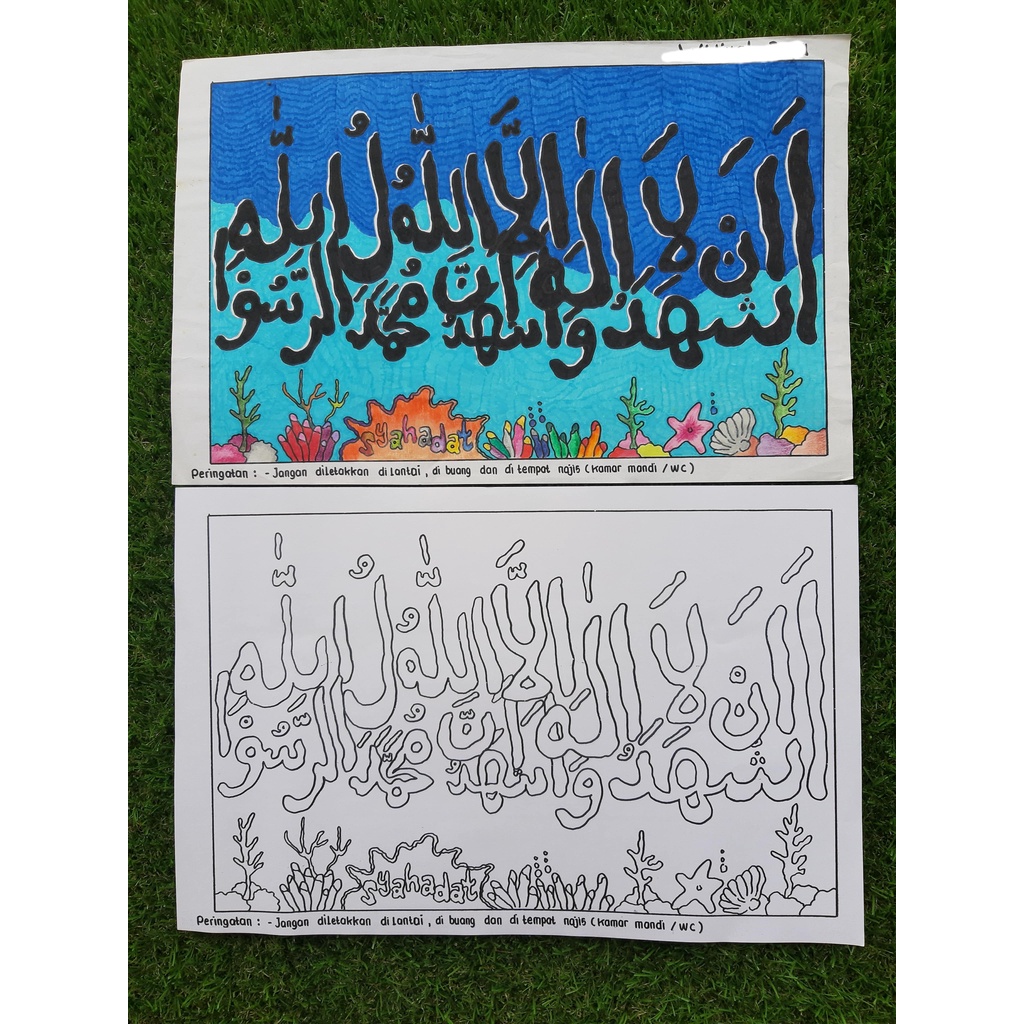 اَشهَدُ اَنْ لَا اِلٰهَ اِلَّا اللّٰهُ وَاَشهَدُ اَنَّ مُحَمَّدَ الرَّسُوْلُ اللّٰهِ
syahadat
Peringatan : - Jangan diletakkan di lantai , di buang dan di tempat najis ( Kamar mandi / WC )
اَشهَدُ اَنْ لَا اِلٰهَ اِلَّا اللّٰهُ وَاَشهَدُ اَنَّ مُحَمَّدَ الرَّسُوْلُ اللّٰهِ
syahadat
Peringatan : - Jangan diletakkan di lantai , di buang dan di tempat najis ( Kamar mandi / WC )